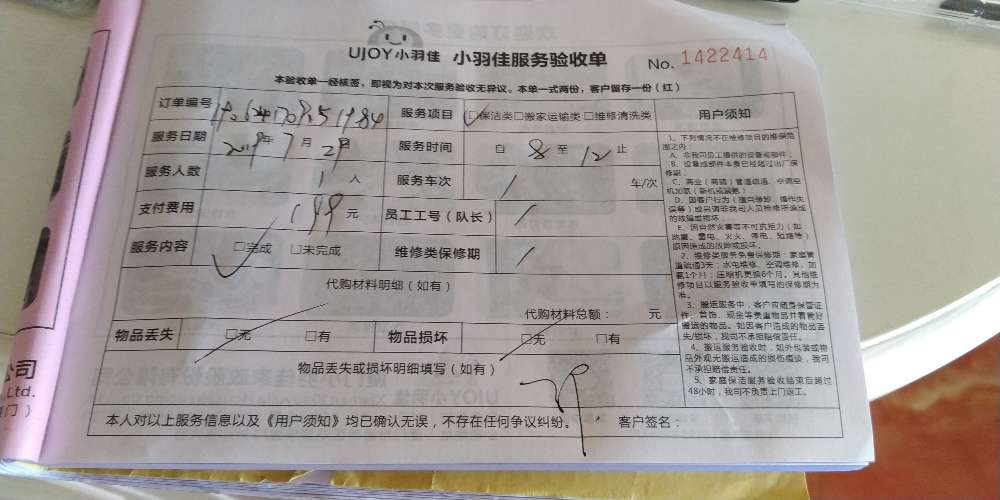 UJOY小羽佳 小羽佳服务验收单 No. 1422414
本验收单一经核签，即视为对本次服务验收无异议。本单一式两份，客户留存一份（红）
订单编号 服务项目 □保洁类□搬家运输类□维修清洗类
服务日期 2019年7月29 服务时间 自 8 至 12 止
服务人数 1人 服务车次 / 车/次
支付费用 199元 员工工号（队长） /
服务内容 □完成 □未完成 维修类保修期 /
代购材料明细（如有）
代购材料总额： 元
物品丢失 □无 □有 物品损坏 □无 □有
物品丢失或损坏明细填写（如有）
本人对以上服务信息以及《用户须知》均已确认无误，不存在任何争议纠纷。 客户签名：
用户须知
1、下列情况不在维修项目的维保范
围之内：
A、非我司员工提供的设备或部件；
B、设备或部件本身已经超过出厂保
修期；
C、商业（商铺）管道疏通、空调空
机加氟（新机或漏氟）
D、因客户行为（擅自操卸、操作失
误等）或另请非我司人员检修所造成
的故障或损坏；
E、因自然灾害等不可抗拒力（如：
地震、雷电、火灾、停电、短路等）
原因造成的故障或损坏。
2、维修类服务免费保修期：家庭管
道疏通3天，水电维修、空调维修、加
氟1个月；压缩机更换6个月。其他维
修项目以服务验收单填写的保修期为
准。
3、搬运服务中，客户应随身保管证
件、首饰、现金等贵重物品并看管好
搬运的物品。如因客户造成的物品丢
失/损坏，我司不承担赔偿责任。
4、搬运服务验收时，如外包装或物
品外观无搬运造成的损伤痕迹，我司
不承担赔偿责任。
5、家庭保洁服务验收结束后超过
48小时，我司不负责上门返工。
公司
Ltd.
门）